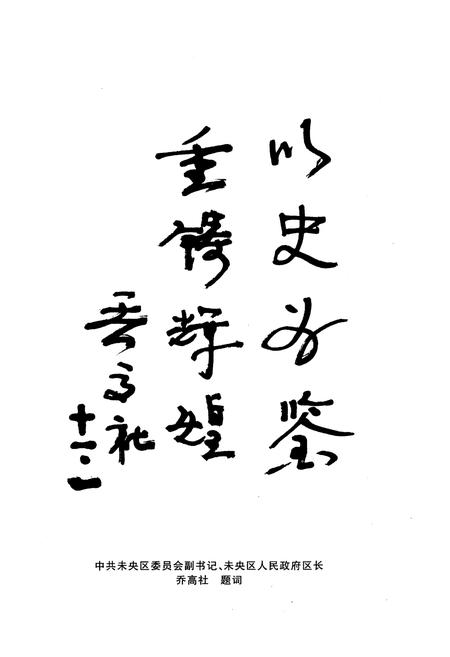 以史为鉴
重铸辉煌
乔高社
十一.一
中共未央区委员会副书记、未央区人民政府区长
乔高社 题词